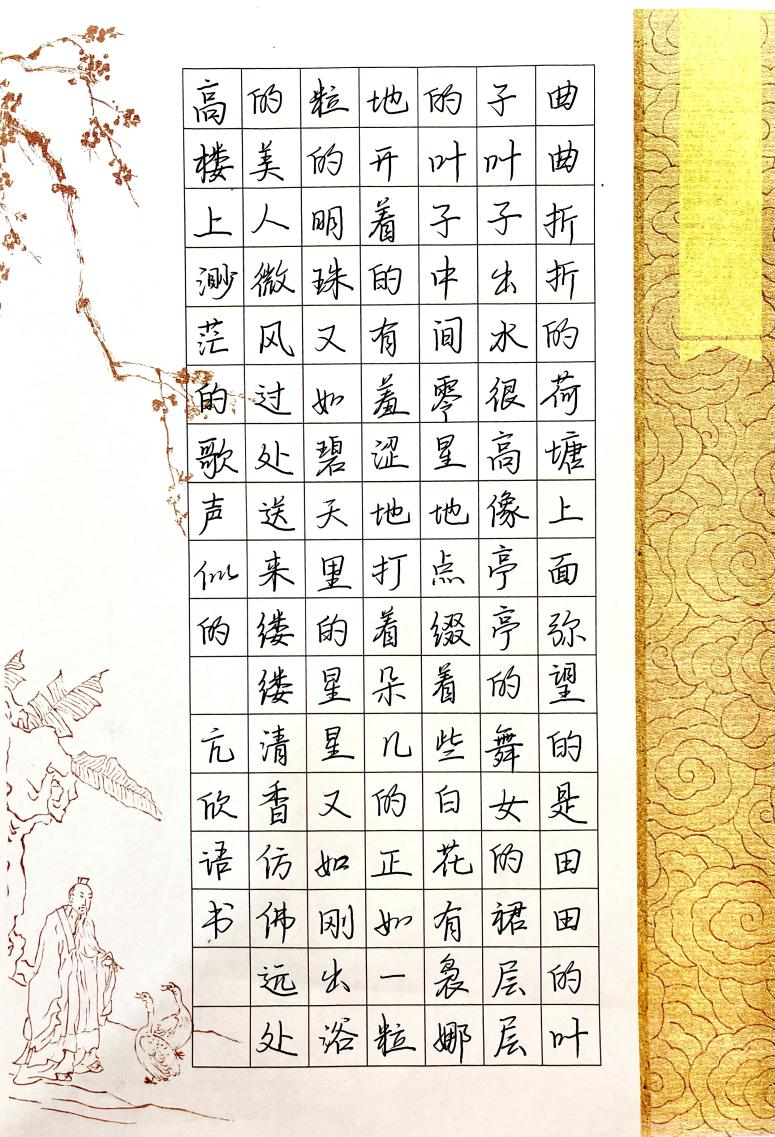 曲曲折折的荷塘上面弥望的是田田的叶
子叶子出水很高像亭亭的舞女的裙层层
的叶子中间零星地点缀着些白花有袅娜
地开着的有羞涩地打着朵儿的正如一粒
粒的明珠又如碧天里的星星又如刚出浴
的美人微风过处送来缕缕清香仿佛远处
高楼上渺茫的歌声似的 亢欣语书